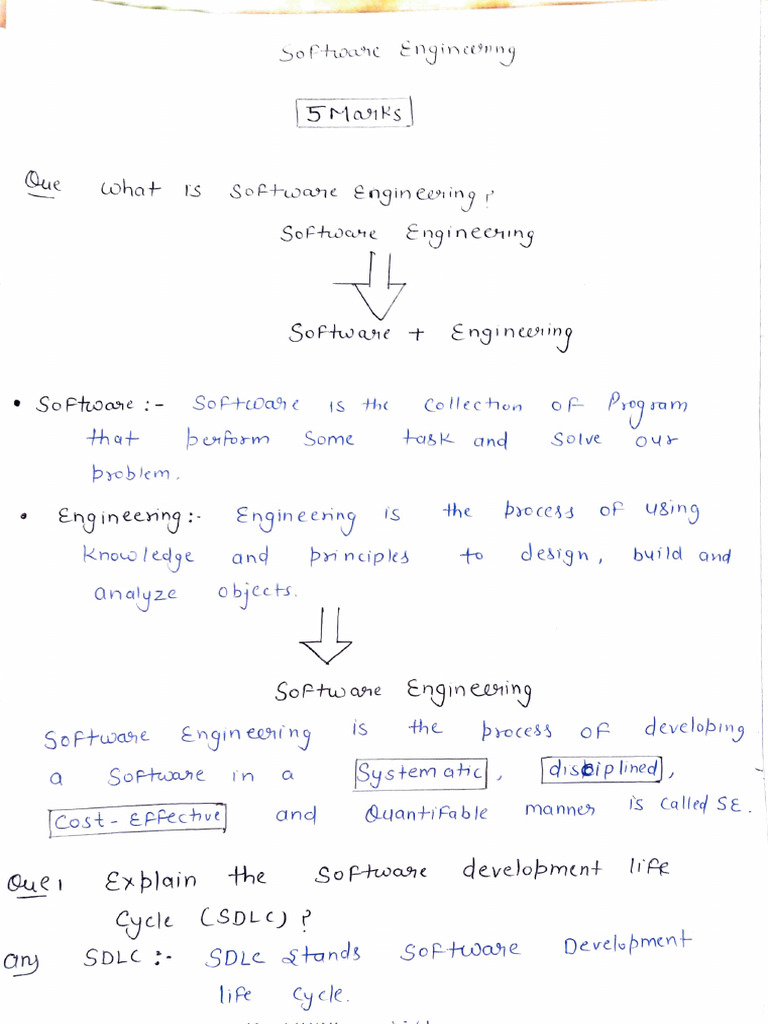 Software Engineering
5 Marks
Que What is Software Engineering?
Software Engineering
Software + Engineering
• Software :- Software is the Collection of Program
that perform some task and solve our
problem.
• Engineering :- Engineering is the process of using
knowledge and principles to design, build and
analyze objects.
Software Engineering
Software Engineering is the process of developing
a Software in a Systematic, disciplined,
Cost-Effective and Quantifable manner is called SE.
Que 1 Explain the Software development life
Cycle (SDLC)?
Any SDLC :- SDLC Stands Software Development
life Cycle.